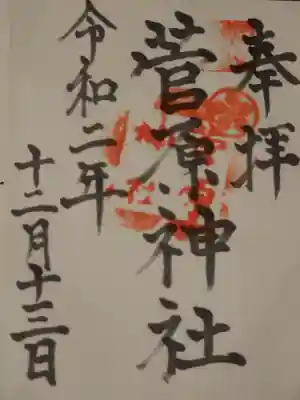 奉拝
菅原神社
令和二年
十二月十三日